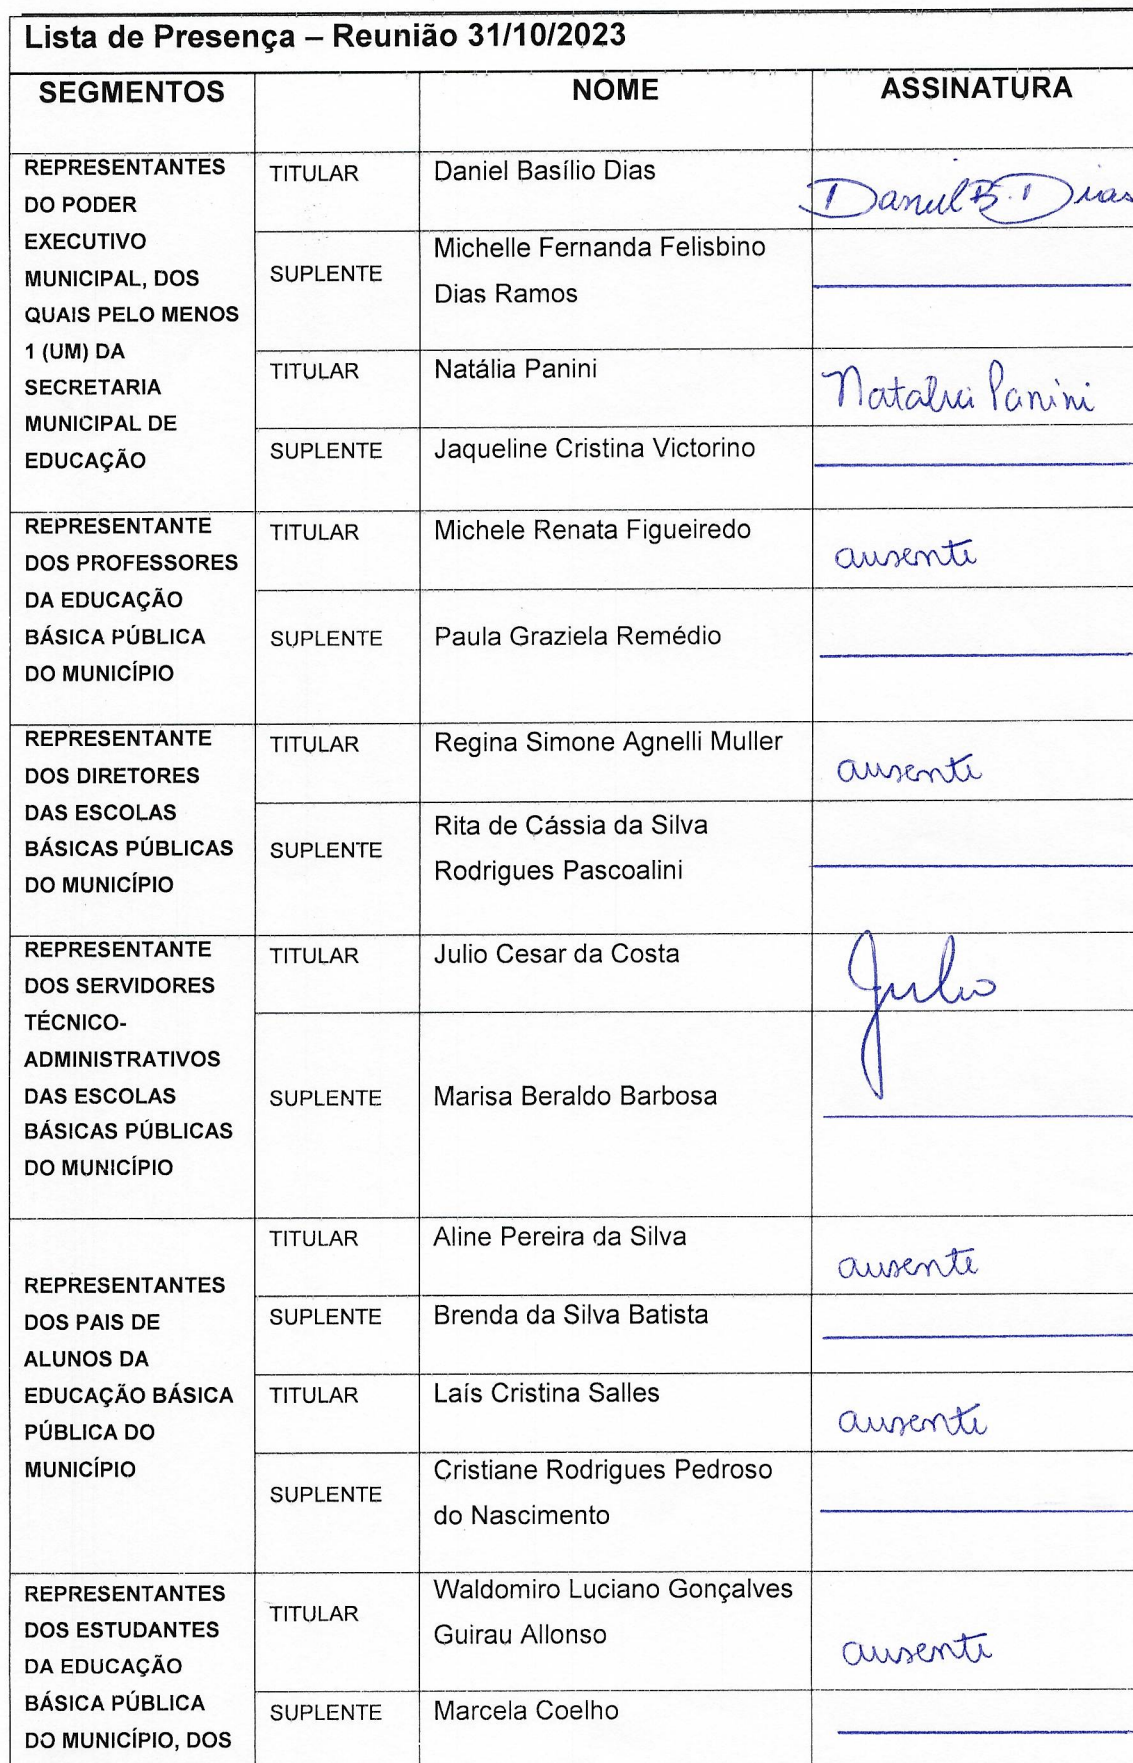 Lista de Presença – Reunião 31/10/2023
SEGMENTOS NOME ASSINATURA
REPRESENTANTES
DO PODER
EXECUTIVO
MUNICIPAL, DOS
QUAIS PELO MENOS
1 (UM) DA
SECRETARIA
MUNICIPAL DE
EDUCAÇÃO
TITULAR Daniel Basílio Dias Daniel B. Dias
SUPLENTE Michelle Fernanda Felisbino
Dias Ramos
TITULAR Natália Panini Natalia Panini
SUPLENTE Jaqueline Cristina Victorino
REPRESENTANTE
DOS PROFESSORES
DA EDUCAÇÃO
BÁSICA PÚBLICA
DO MUNICÍPIO
TITULAR Michele Renata Figueiredo ausente
SUPLENTE Paula Graziela Remédio
REPRESENTANTE
DOS DIRETORES
DAS ESCOLAS
BÁSICAS PÚBLICAS
DO MUNICÍPIO
TITULAR Regina Simone Agnelli Muller ausente
SUPLENTE Rita de Cássia da Silva
Rodrigues Pascoalini
REPRESENTANTE
DOS SERVIDORES
TÉCNICO-
ADMINISTRATIVOS
DAS ESCOLAS
BÁSICAS PÚBLICAS
DO MUNICÍPIO
TITULAR Julio Cesar da Costa Julio
SUPLENTE Marisa Beraldo Barbosa
REPRESENTANTES
DOS PAIS DE
ALUNOS DA
EDUCAÇÃO BÁSICA
PÚBLICA DO
MUNICÍPIO
TITULAR Aline Pereira da Silva ausente
SUPLENTE Brenda da Silva Batista
TITULAR Laís Cristina Salles ausente
SUPLENTE Cristiane Rodrigues Pedroso
do Nascimento
REPRESENTANTES
DOS ESTUDANTES
DA EDUCAÇÃO
BÁSICA PÚBLICA
DO MUNICÍPIO, DOS
TITULAR Waldomiro Luciano Gonçalves
Guirau Allonso ausente
SUPLENTE Marcela Coelho